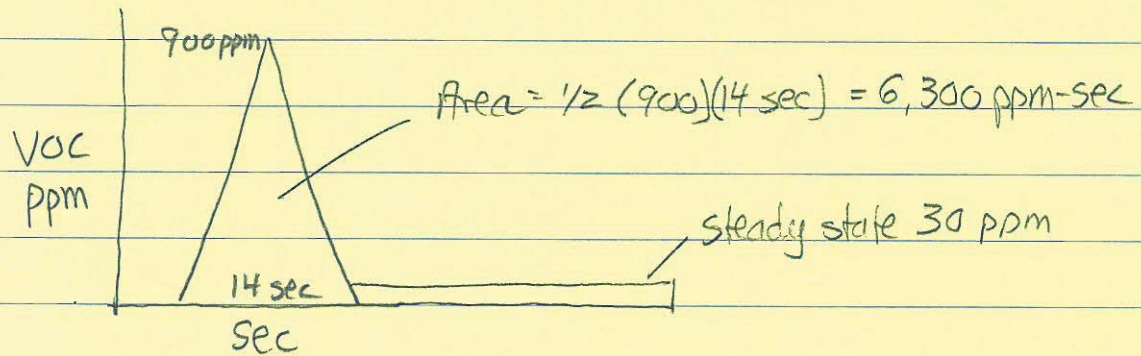 900 ppm
Area = 1/2 (900)(14 sec) = 6,300 ppm-sec
VOC
ppm
steady state 30 ppm
14 sec
sec